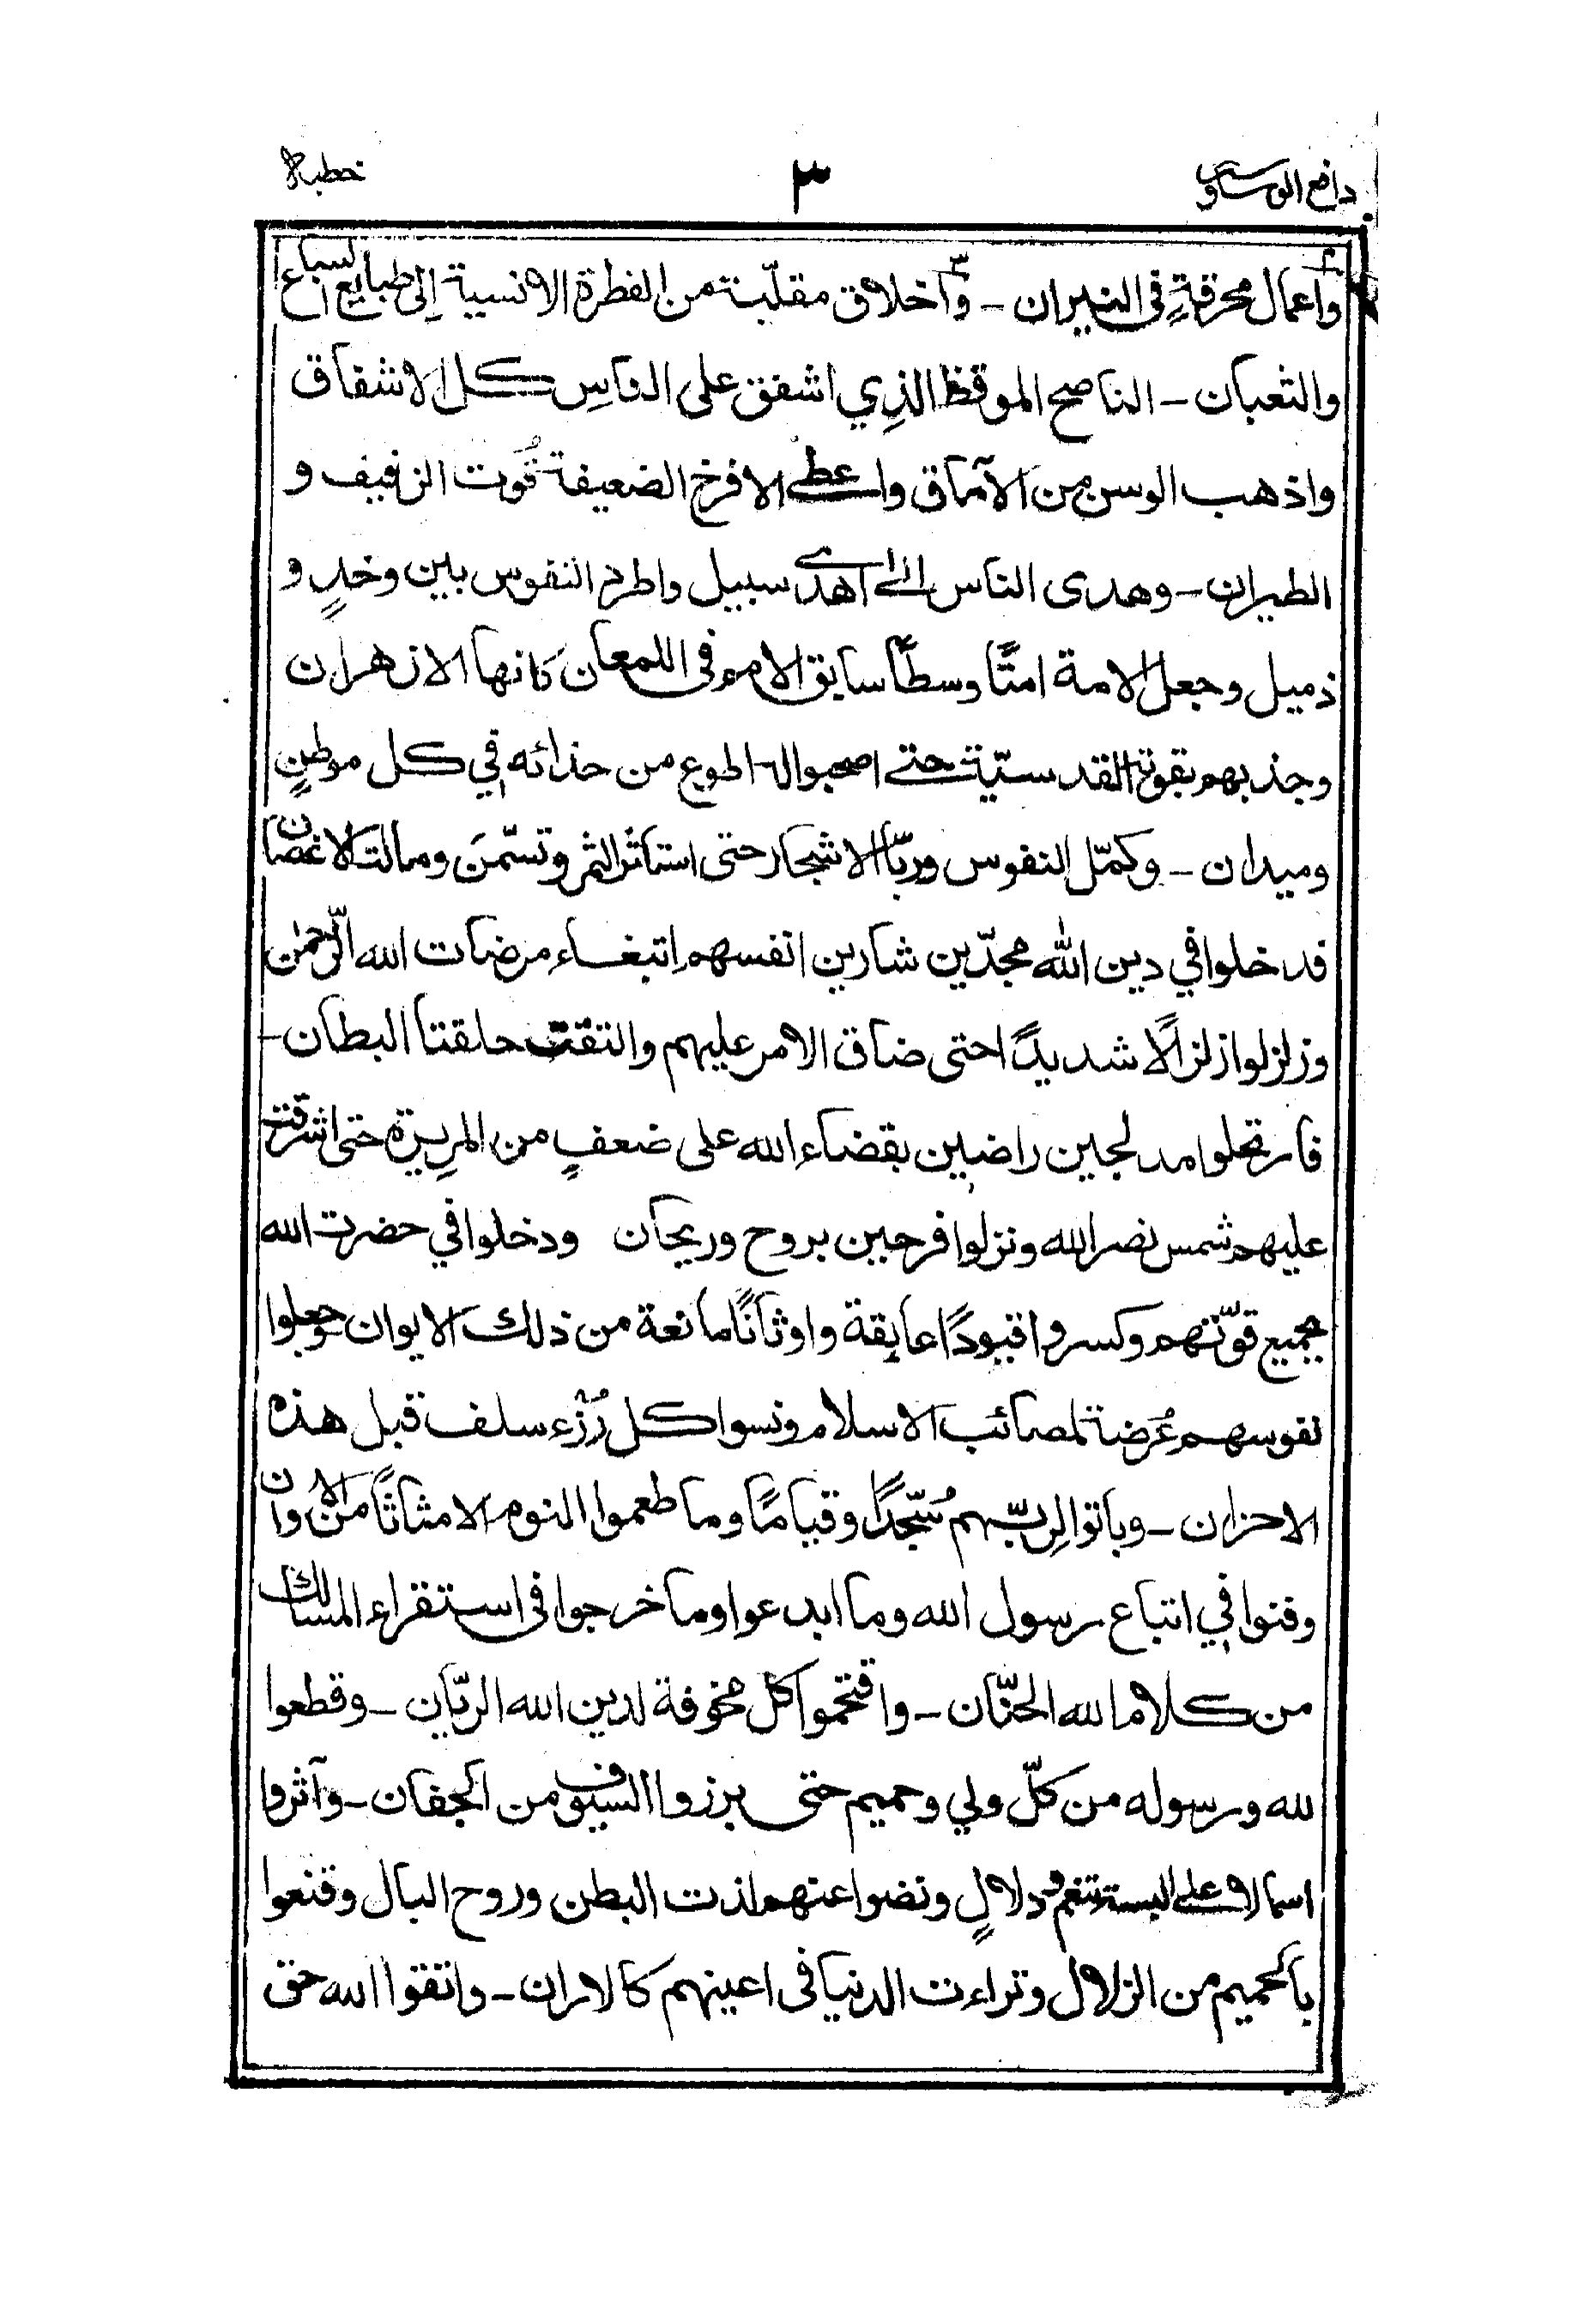 دافع الوساوس
٣
خطبه
واعمال محرقةٍ فی النیران - وّاخلاق مقلّبة من الفطرة الانسیة الی طبایع السباع
والثعبان - الناصح الموقظ الذِي اشفق علی الناسِ کل الاشفاق
واذهب الوسن من الآماق واعطی الافرخ الضعیفة قُوت الزفیف و
الطیران - وهدی الناس الی اهدی سبیل واطرد النفوس بین وخدٍ و
ذمیل وجعل الامة امّتًا وسطًا سابق الامم فی اللمعان کانها الازهران
وجذبهم بقوته القدسیّة حتی اصحبوا له اطوع من حذائه في کل موطنٍ
ومیدان - وکمّل النفوس وربّا الاشجار حتی استاثر الثمر وتسمّنَ ومالت الاغصان
فدخلوا في دین الله مجدّین شارین انفسهم ابتغاء مرضات الله الرّحمٰن
وزلزلوا زلزالًا شدیدًا حتی ضاق الامر علیهم والتقت حلقتا البطان -
فارتحلوا مدلجین راضین بقضاء الله علی ضعفٍ من المریرة حتی اشرقت
علیهم شمس نصر الله ونزلوا فرحین بروح وریحان ودخلوا في حضرت الله
بجمیع قوّتهم وکسروا قیودًا عایقة واوثانًا مانعة من ذلك الایوان وجعلوا
نفوسهم عُرضة لمصائب الاسلام ونسوا کل رُزْء سلف قبل هذه
الاحزان - وباتوا لِربّهم سُجّدًا وقیامًا وما طعموا النوم الا مثاثًا من الاوان
وفنوا في اتباع رسول الله وما ابدعوا وما خرجوا فی استقراء المسالك
من کلام الله الحنّان - واقتحموا کل مخوفة لدین الله الربّان - وقطعوا
لله ورسوله من کلّ ولي وحمیم حتی برزوا السیوف من الجفان - وآثروا
اسمالا علی البسة تنعم ودلالٍ ونضوا عنهم لذت البطن وروح البال وقنعوا
بالحمیم من الزلال وتراءت الدنیا فی اعینهم کالاران - واتقوا الله حق